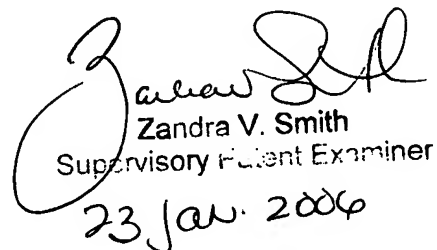 Zandra V. Smith
Supervisory Patent Examiner
23 Jan. 2006